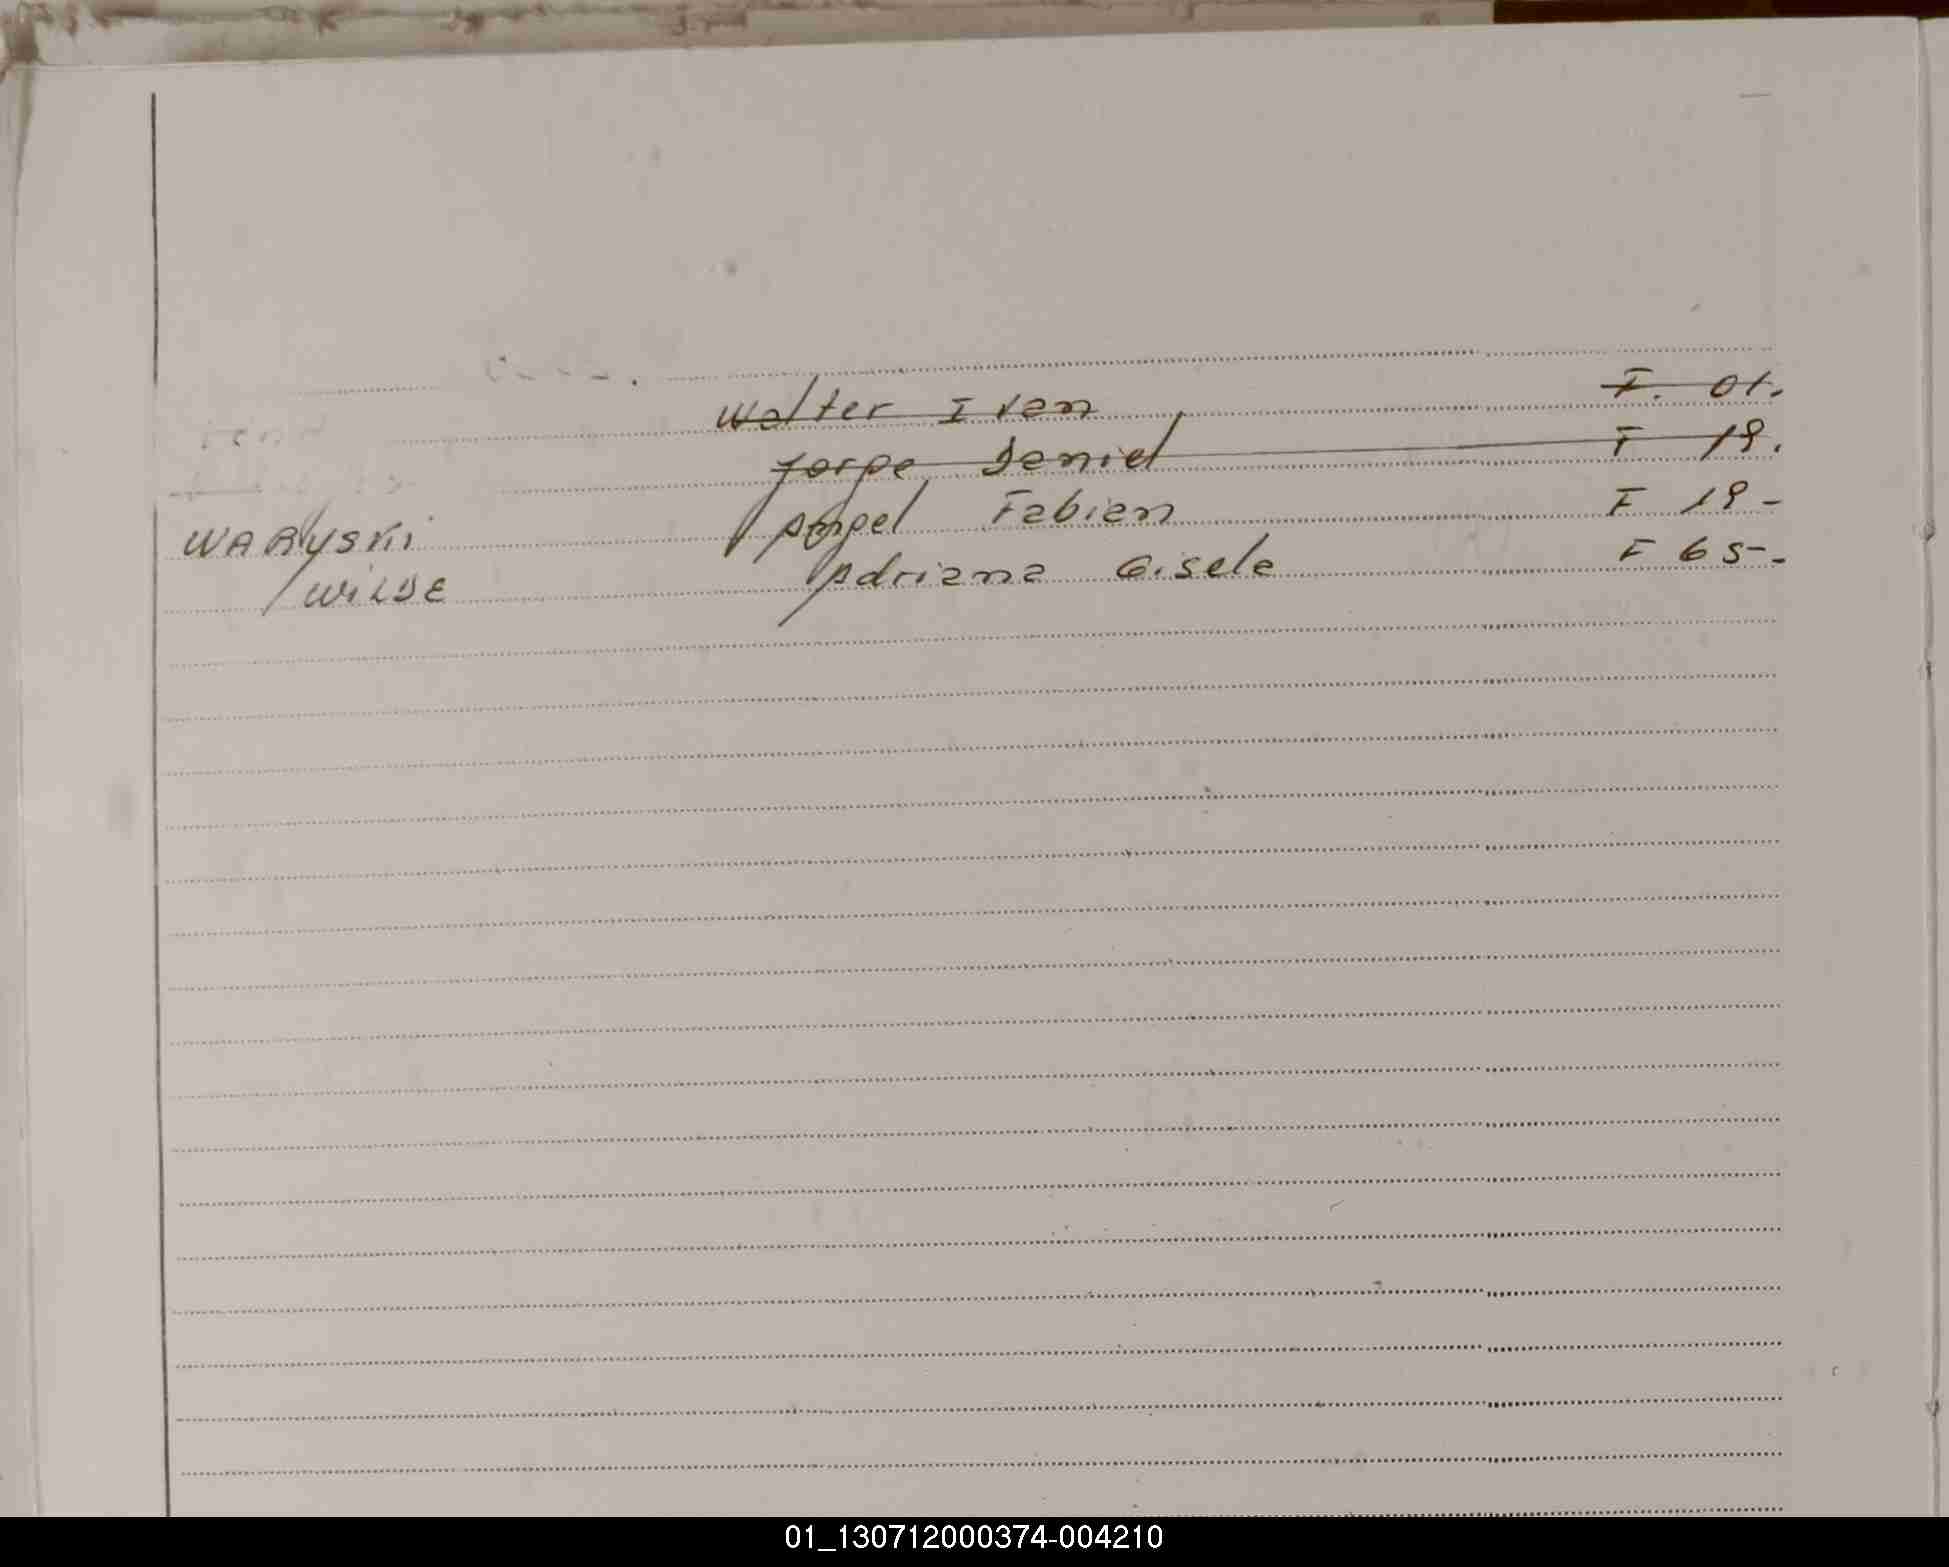 Walter Ivan F. 01.
Jorge Daniel F 19.
WARYSKI Angel Fabian F 19-
WILDE Adriana Gisela F 65-.
01_130712000374-004210